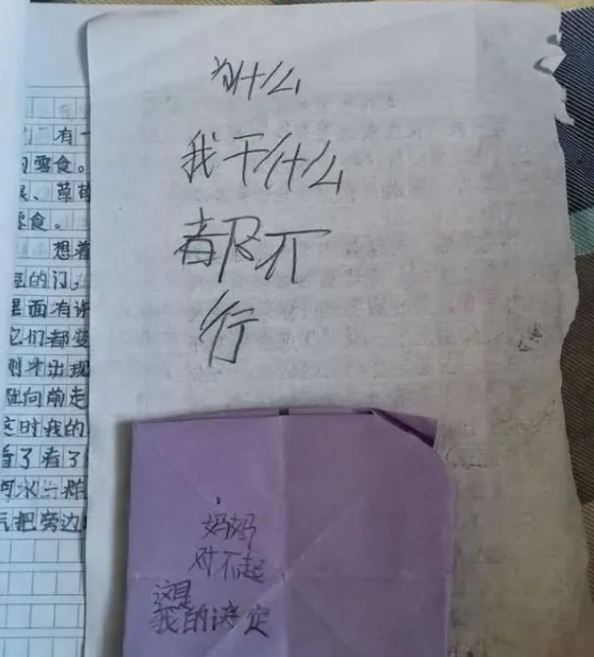 有一
零食。
、草莓
零食。
想着
的门。
里面有许
它们都变
刚才出现
向前走
这时我的
看了看了
河水一样
把旁边
为什么
我干什么
都不
行
妈妈
对不起
这是
我的决定